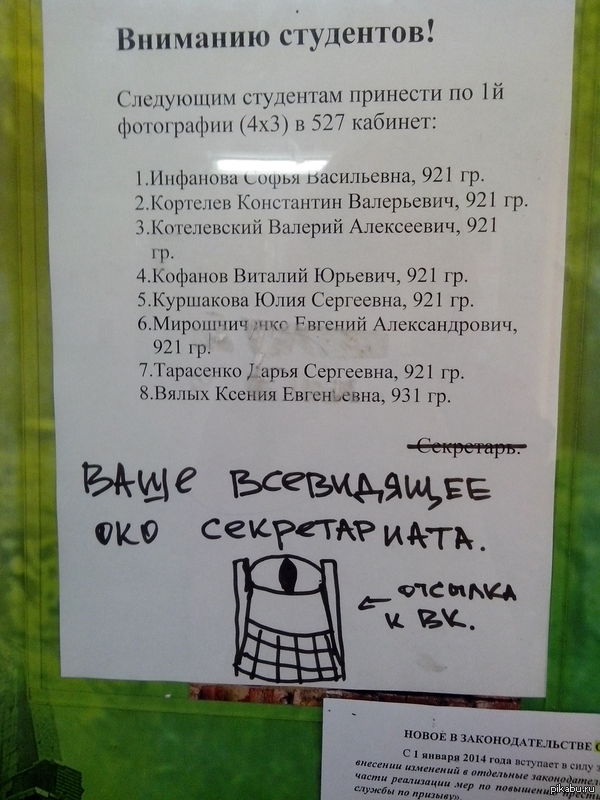 Вниманию студентов!
Следующим студентам принести по 1й
фотографии (4х3) в 527 кабинет:
1.Инфанова Софья Васильевна, 921 гр.
2.Кортелев Константин Валерьевич, 921 гр.
3.Котелевский Валерий Алексеевич, 921
гр.
4.Кофанов Виталий Юрьевич, 921 гр.
5.Куршакова Юлия Сергеевна, 921 гр.
6.Мирошниченко Евгений Александрович,
921 гр.
7.Тарасенко Дарья Сергеевна, 921 гр.
8.Вялых Ксения Евгеньевна, 931 гр.
Секретарь.
ВАШЕ ВСЕВИДЯЩЕЕ
ОКО СЕКРЕТАРИАТА.
← ОТСЫЛКА
К ВК.
НОВОЕ В ЗАКОНОДАТЕЛЬСТВЕ
С 1 января 2014 года вступает в силу
внесении изменений в отдельные
части реализации мер по повышению
службы по призыву»
pikabu.ru